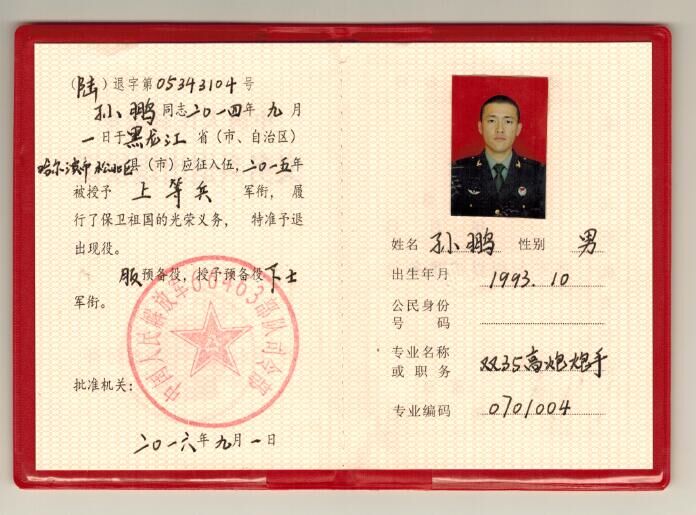 （陆）退字第05343104号
孙鹏同志二〇一四年九月
一日于黑龙江省（市、自治区）
哈尔滨市松北区县（市）应征入伍，二〇一五年
被授予上等兵军衔，履
行了保卫祖国的光荣义务，特准予退
出现役。
服预备役，授予预备役下士
军衔。
中国人民解放军00403部队司令部
批准机关：
二〇一六年九月一日
姓名 孙鹏 性别 男
出生年月 1993.10
公民身份
号码
专业名称
或职务 双35高炮炮手
专业编码 0701004